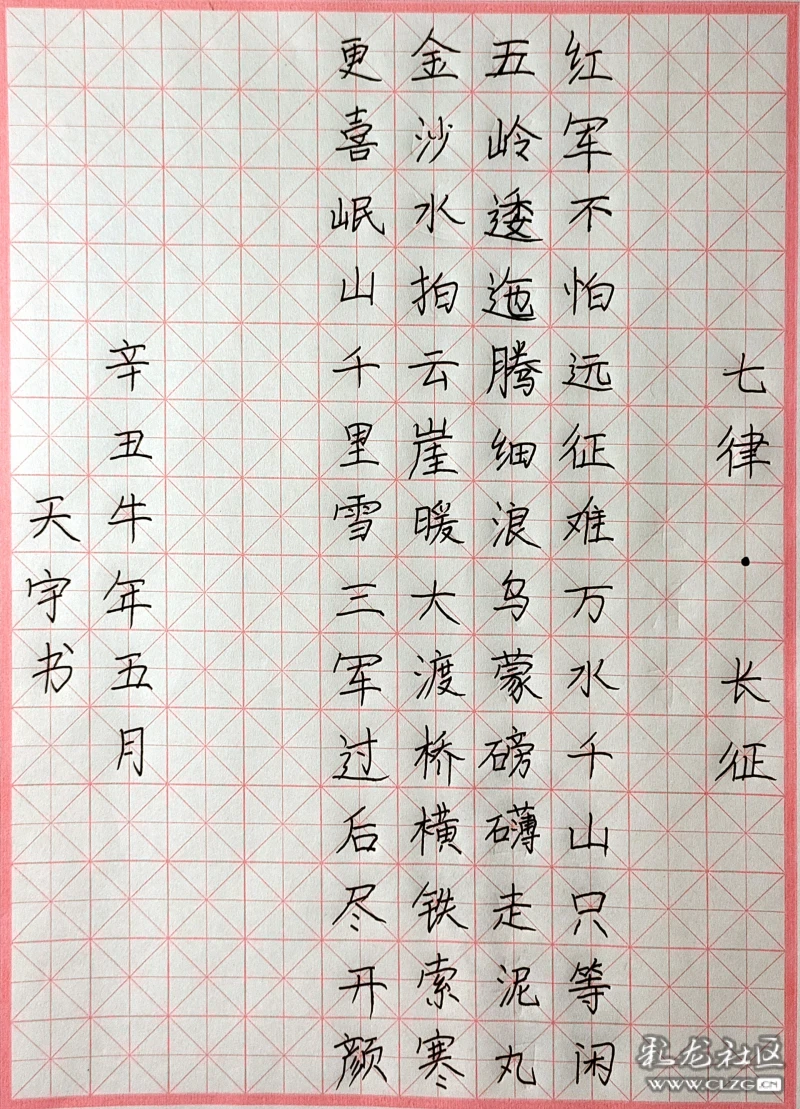 七律·长征
红军不怕远征难万水千山只等闲
五岭逶迤腾细浪乌蒙磅礴走泥丸
金沙水拍云崖暖大渡桥横铁索寒
更喜岷山千里雪三军过后尽开颜
辛丑牛年五月
天宇书
乳龙社区
WWW.CLZG.CN